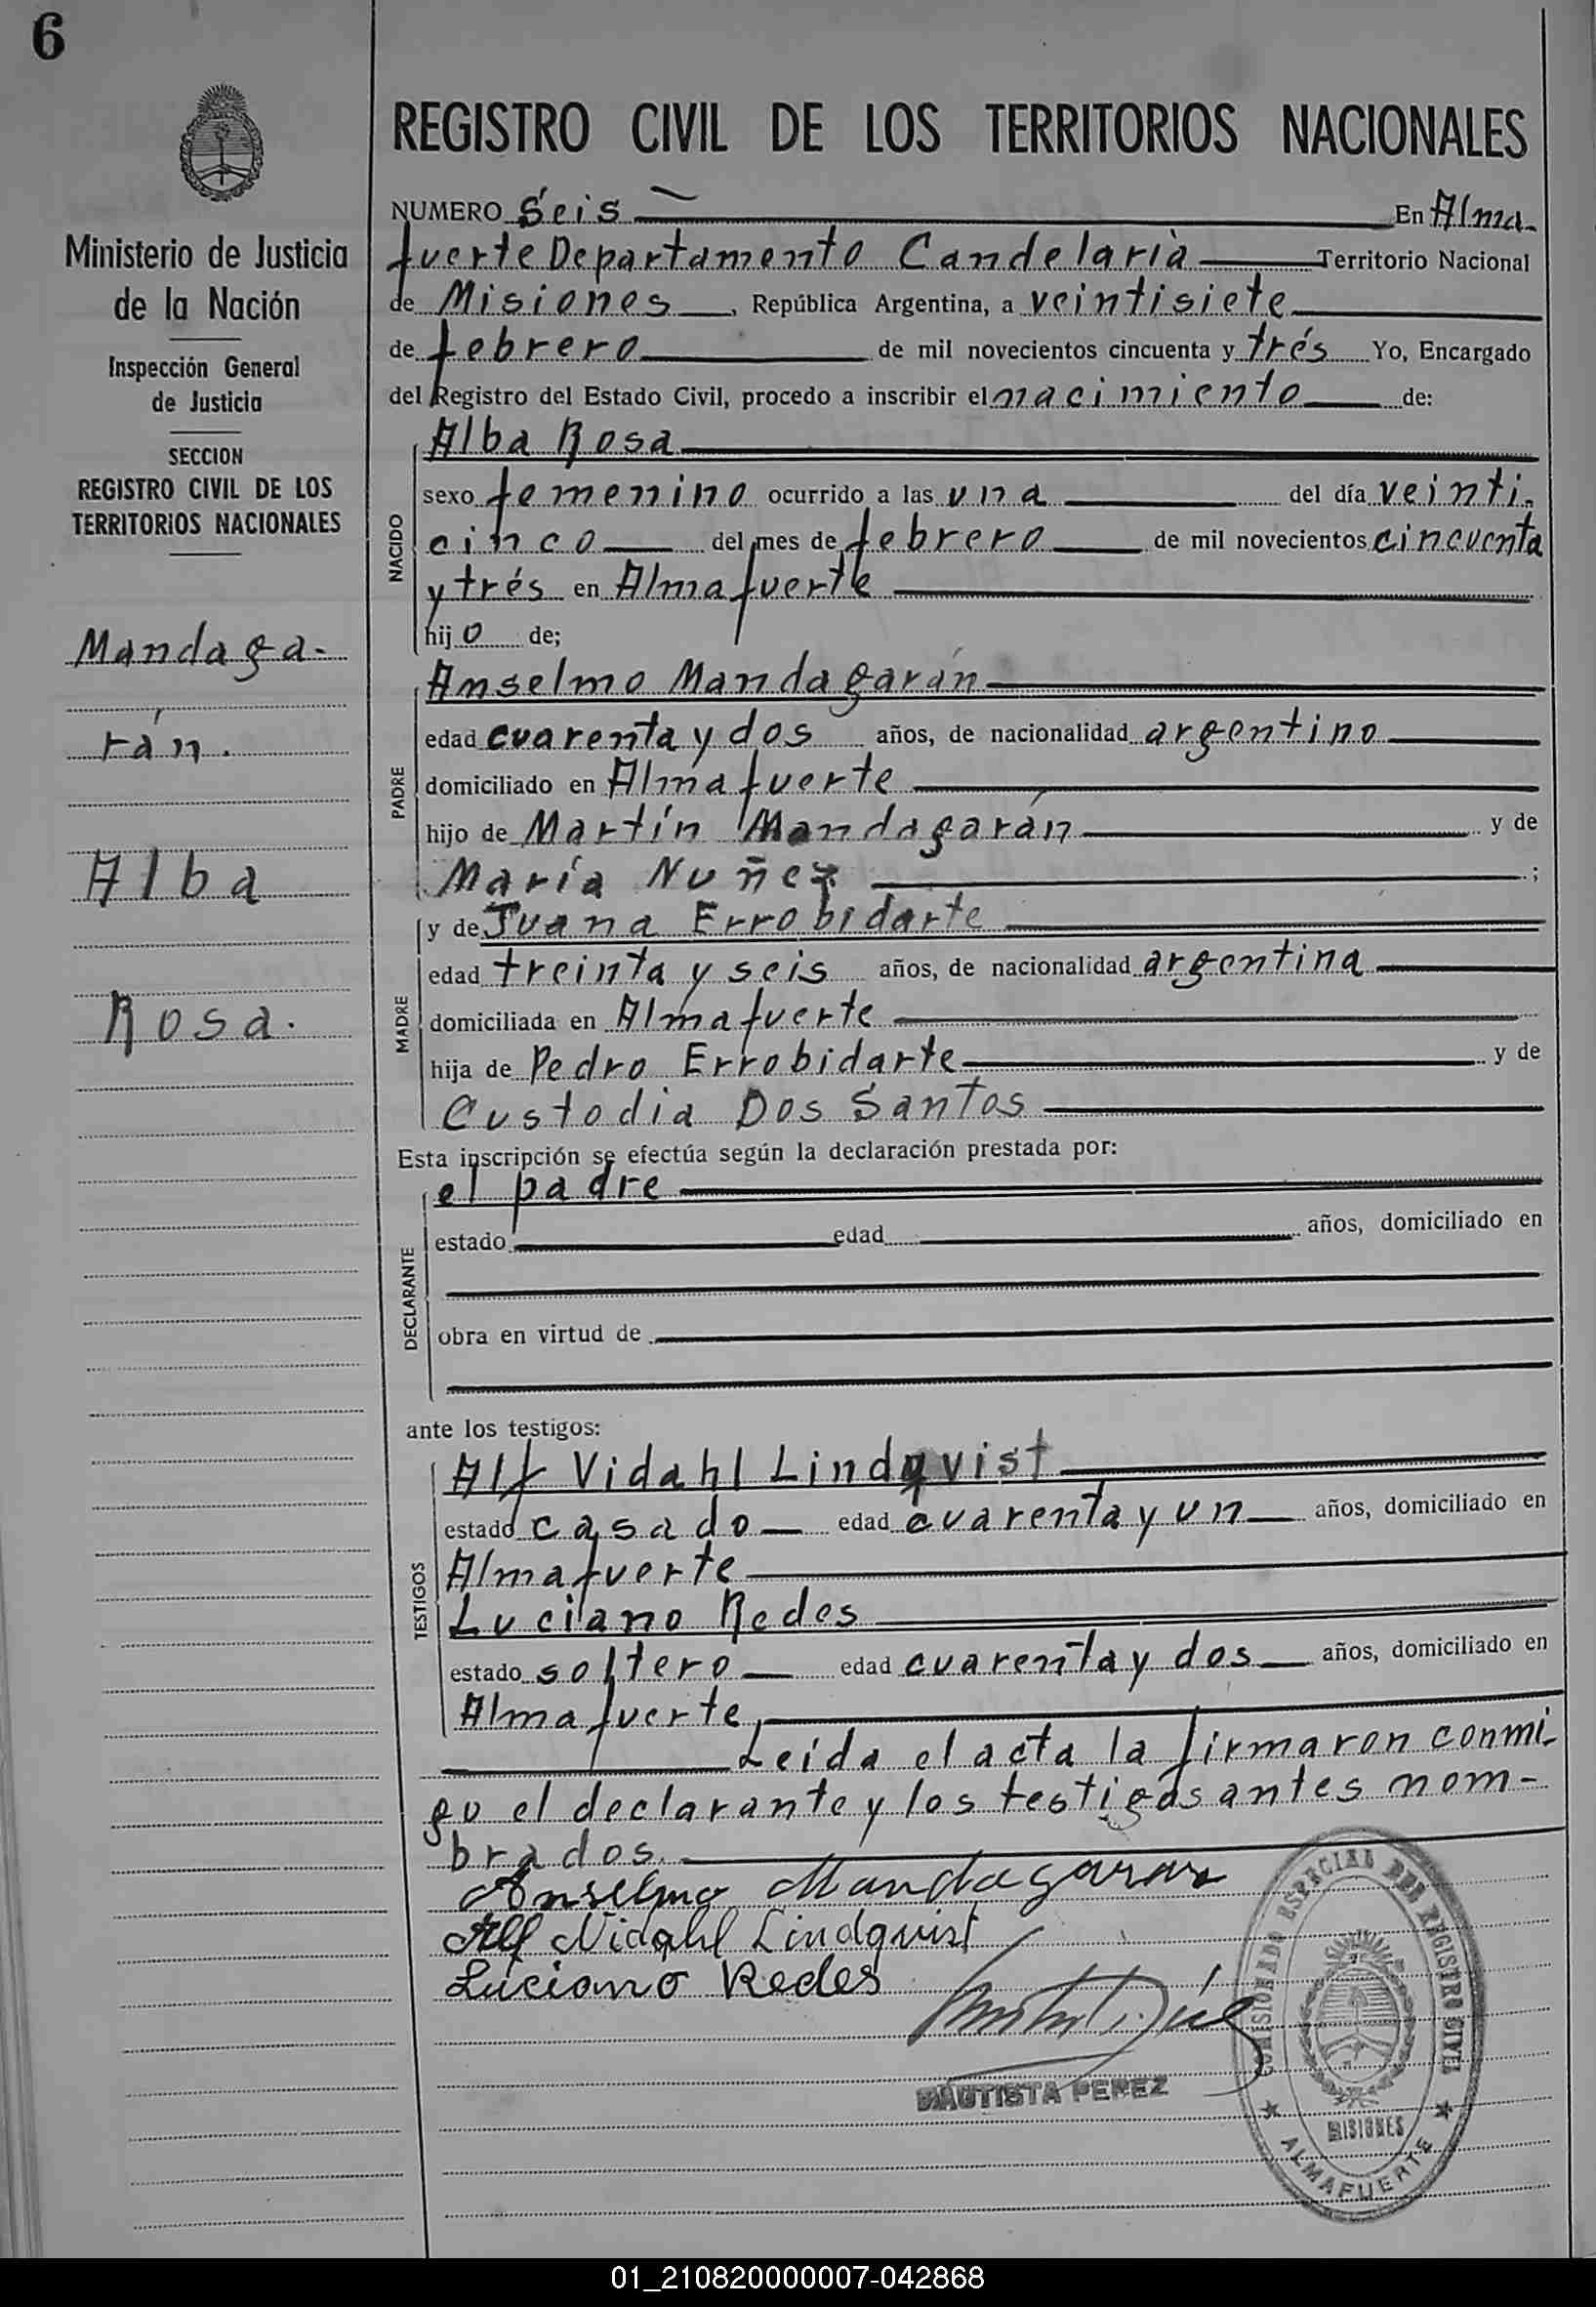 6
REGISTRO CIVIL DE LOS TERRITORIOS NACIONALES
Ministerio de Justicia
de la Nación
Inspección General
de Justicia
SECCION
REGISTRO CIVIL DE LOS
TERRITORIOS NACIONALES
Mandaga-
rán.
Alba
Rosa.
NUMERO Seis En Alma-
fuerte Departamento Candelaria Territorio Nacional
de Misiones, República Argentina, a veintisiete
de febrero de mil novecientos cincuenta y trés Yo, Encargado
del Registro del Estado Civil, procedo a inscribir el nacimiento de:
NACIDO
Alba Rosa
sexo femenino ocurrido a las una del día veinti-
cinco del mes de febrero de mil novecientos cincuenta
y trés en Almafuerte
hijo de;
PADRE
Anselmo Mandagarán
edad cuarenta y dos años, de nacionalidad argentino
domiciliado en Almafuerte
hijo de Martín Mandagarán y de
María Nuñez ;
MADRE
y de Juana Errobidarte
edad treinta y seis años, de nacionalidad argentina
domiciliada en Almafuerte
hija de Pedro Errobidarte y de
Custodia Dos Santos
Esta inscripción se efectúa según la declaración prestada por:
DECLARANTE
el padre
estado edad años, domiciliado en
obra en virtud de
ante los testigos:
TESTIGOS
Alf Vidahl Lindqvist
estado casado edad cuarenta y un años, domiciliado en
Almafuerte
Luciano Redes
estado soltero edad cuarenta y dos años, domiciliado en
Almafuerte
Leída el acta la firmaron conmi-
go el declarante y los testigos antes nom-
brados.
Anselmo Mandagaran
Alf Vidahl Lindqvist
Luciano Redes
BAUTISTA PEREZ
COMISIONADO ESPECIAL DEL REGISTRO CIVIL
MISIONES
ALMAFUERTE
01_210820000007-042868